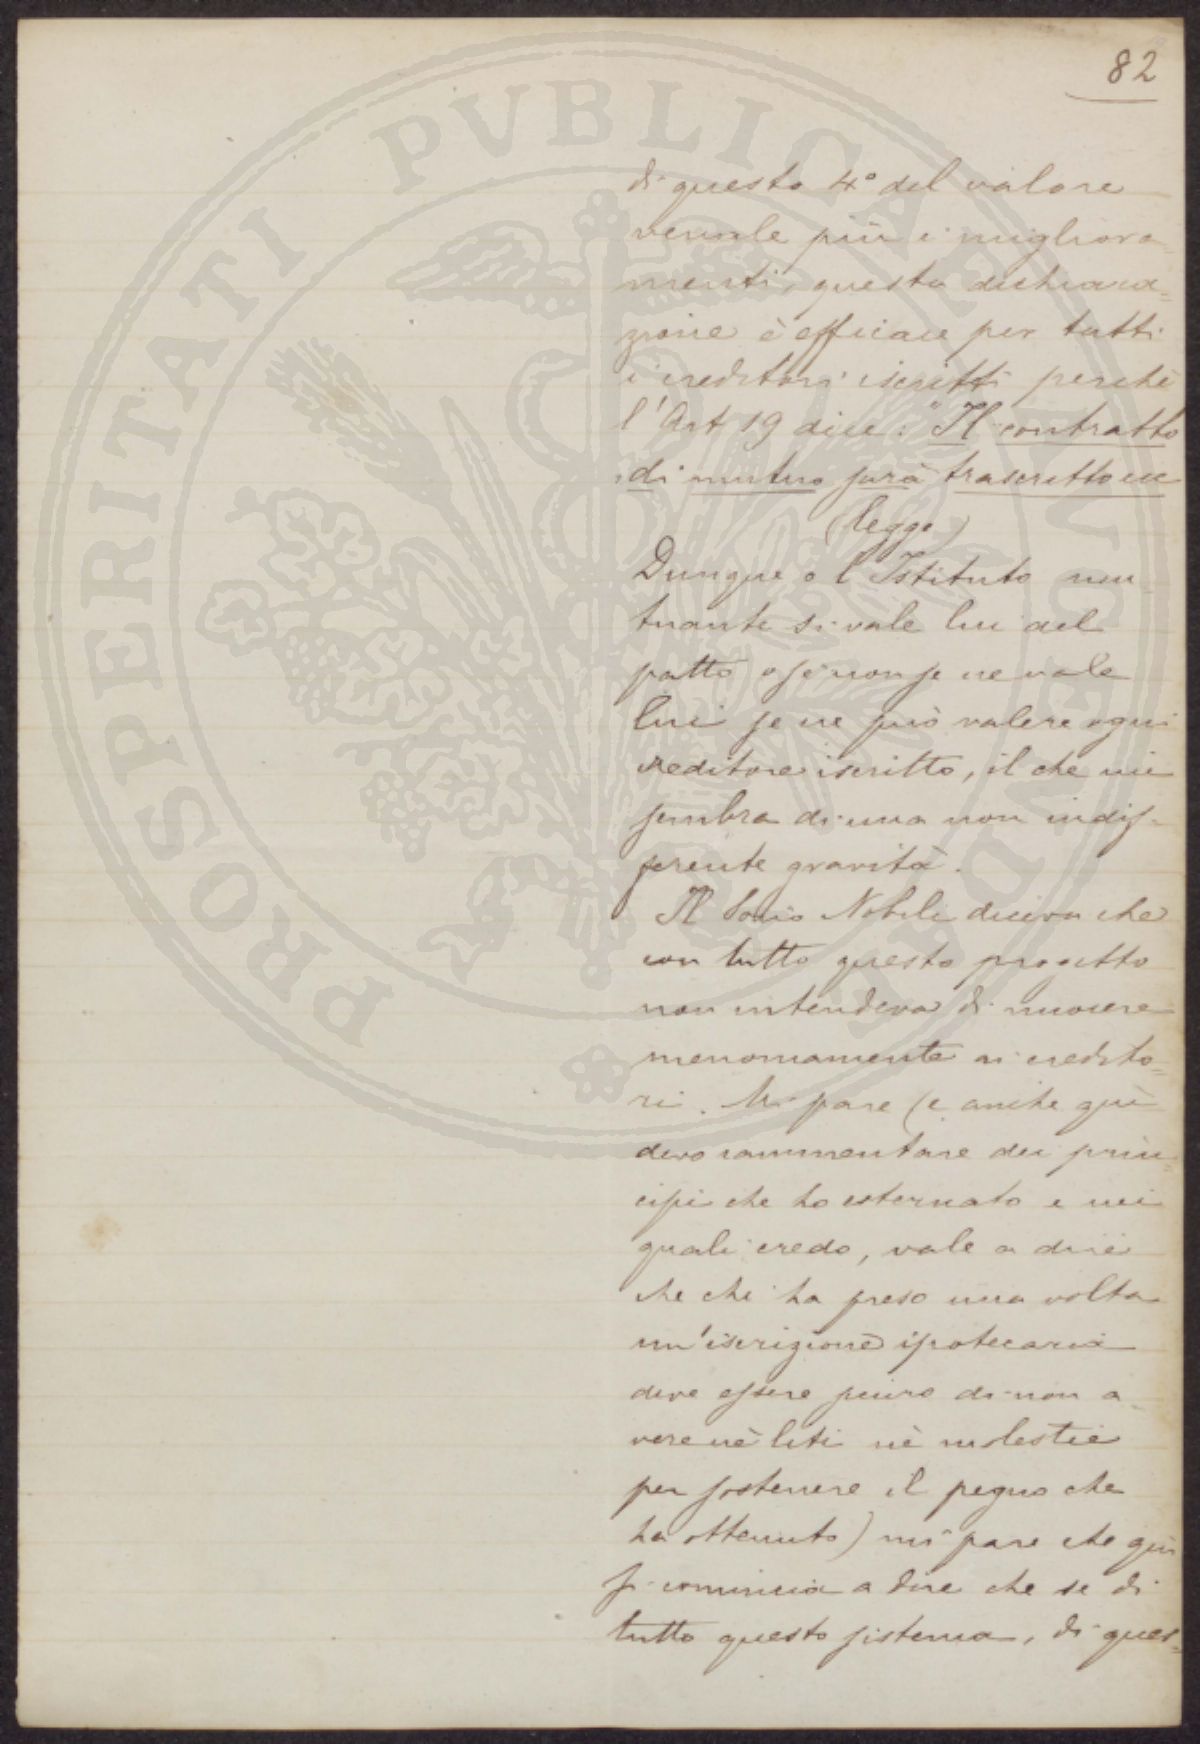 82
di questo 4° del valore
venale più i migliora=
menti, questa dichiara=
zione è efficace per tutti
i creditori iscritti perchè
l'Art 19 dice: "Il contratto
di mutuo sarà trascritto ecc
(legge)
Dunque o l'Istituto mu-
tuante si vale lui del
patto o se non se ne vale
lui se ne può valere ogni
creditore iscritto, il che mi
sembra di una non indif-
ferente gravità.
Il Socio Nobili diceva che
con tutto questo progetto
non intendeva di nuocere
menomamente ai credito=
ri. Mi pare (e anche quì
devo rammentare dei prin=
cipi che ho esternato e nei
quali credo, vale a dire
che chi ha preso una volta
un'iscrizione ipotecaria
deve essere sicuro di non a-
vere nè liti nè molestie
per sostenere il pegno che
ha ottenuto) mi pare che quì
si comincia a dire che se di
tutto questo sistema, di ques=
PROSPERITATI PVBLICAE AVGENDAE